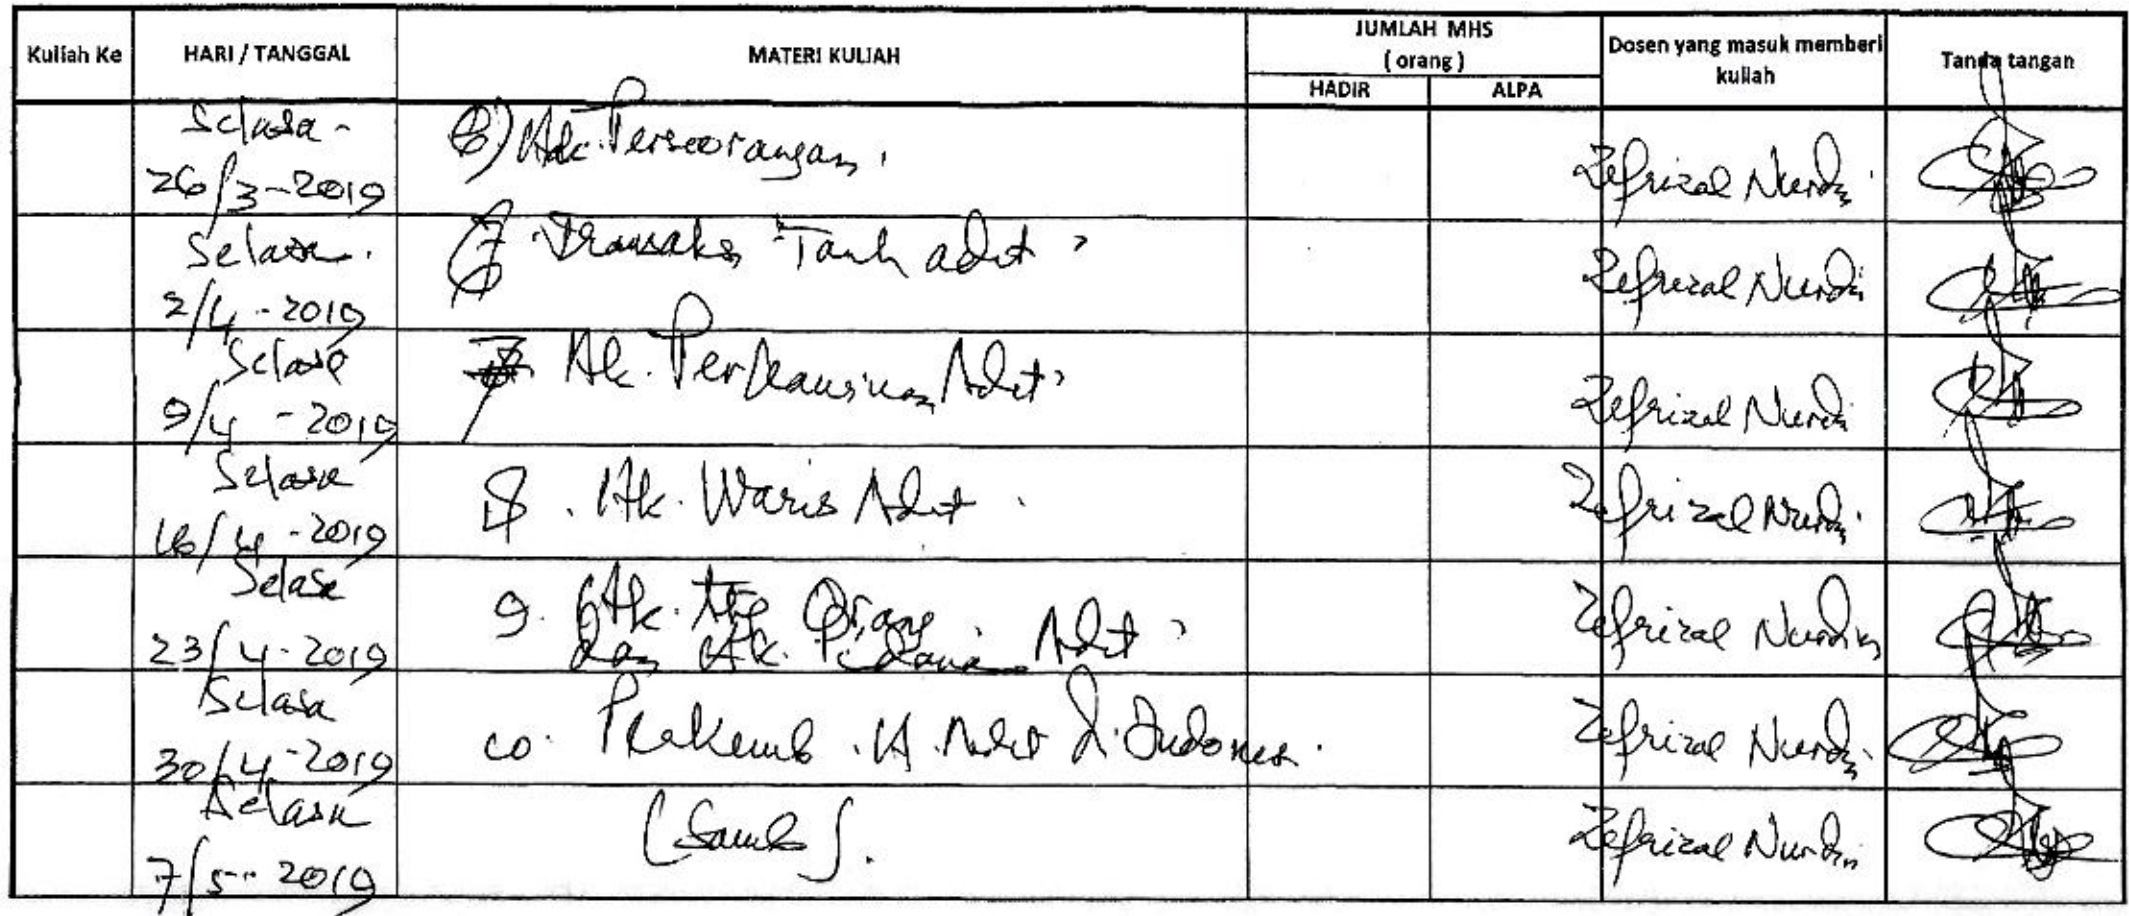 Kuliah Ke HARI / TANGGAL MATERI KULIAH JUMLAH MHS ( orang ) Dosen yang masuk memberi kuliah Tanda tangan
HADIR ALPA
Selasa -
26/3-2019 6) Hk. Perseorangan. Zefrizal Nurdin
Selasa.
2/4-2019 7. Transaksi Tanh adat Zefrizal Nurdin
Selasa
9/4-2019 Hk. Perkawinan Adat Zefrizal Nurdin
Selasa
16/4-2019 8. Hk. Waris Adat. Zefrizal Nurdin
Selasa
23/4-2019 9. Hk. Orang Zefrizal Nurdin
dan Hk. Pidana Adat
Selasa
30/4-2019 10. Perkemb. H. Adat di Indones. Zefrizal Nurdin
Selasa
7/5-2019 (Samb). Zefrizal Nurdin